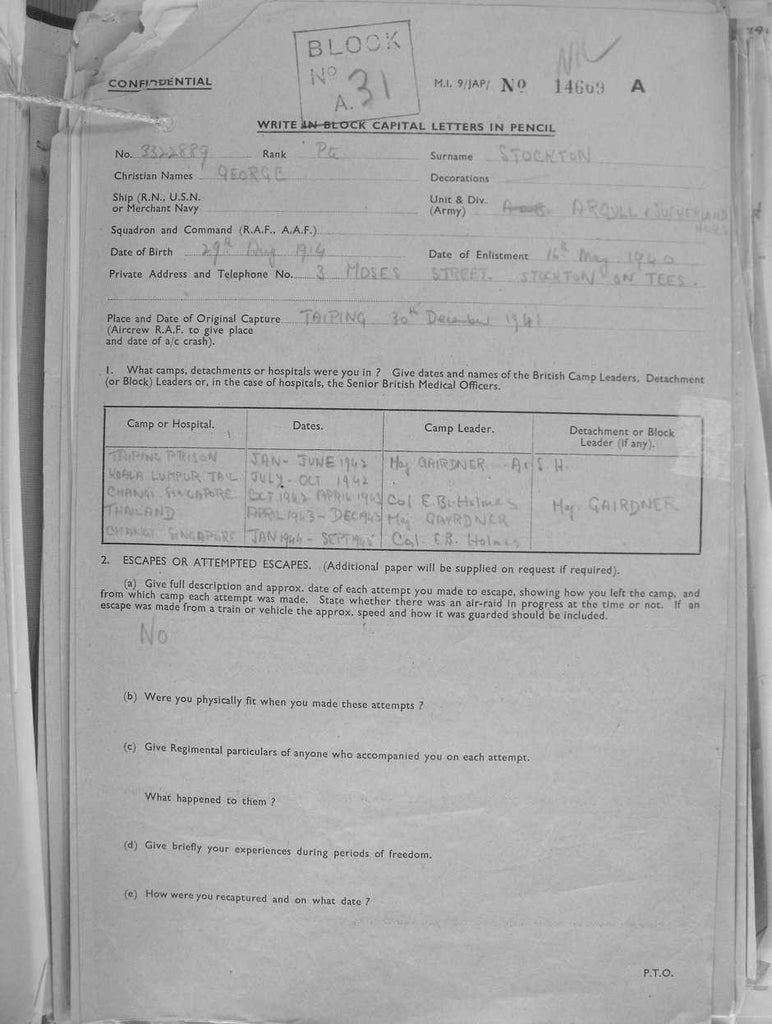 BLOCK
Nº 31
A.
NIL
CONFIDENTIAL
M.I. 9/JAP/ Nº 14609 A
WRITE IN BLOCK CAPITAL LETTERS IN PENCIL
No. 3322889 Rank Pte Surname STOCKTON
Christian Names GEORGE Decorations
Ship (R.N., U.S.N. or Merchant Navy Unit & Div. (Army) ARGYLL & SUTHERLAND
Squadron and Command (R.A.F., A.A.F.)
Date of Birth 29th Aug 1914 Date of Enlistment 16th May 1940
Private Address and Telephone No. 3 MOSES STREET. STOCKTON ON TEES.
Place and Date of Original Capture TAIPING 30th December 1941
(Aircrew R.A.F. to give place
and date of a/c crash).
1. What camps, detachments or hospitals were you in ? Give dates and names of the British Camp Leaders, Detachment
(or Block) Leaders or, in the case of hospitals, the Senior British Medical Officers.
Camp or Hospital. Dates. Camp Leader. Detachment or Block Leader (if any).
TAIPING PRISON JAN - JUNE 1942 Maj GAIRDNER A & S. H.
KOALA LUMPUR JAIL JULY - OCT 1942
CHANGI SINGAPORE OCT 1942 APRIL 1943 Col E.B. Holmes Maj. GAIRDNER
THAILAND APRIL 1943 - DEC 1943 Maj GAYRDNER
CHANGI SINGAPORE JAN 1944 - SEPT 1945 Col. E.B. Holmes
2. ESCAPES OR ATTEMPTED ESCAPES. (Additional paper will be supplied on request if required).
(a) Give full description and approx. date of each attempt you made to escape, showing how you left the camp, and
from which camp each attempt was made. State whether there was an air-raid in progress at the time or not. If an
escape was made from a train or vehicle the approx. speed and how it was guarded should be included.
No
(b) Were you physically fit when you made these attempts ?
(c) Give Regimental particulars of anyone who accompanied you on each attempt.
What happened to them ?
(d) Give briefly your experiences during periods of freedom.
(e) How were you recaptured and on what date ?
P.T.O.